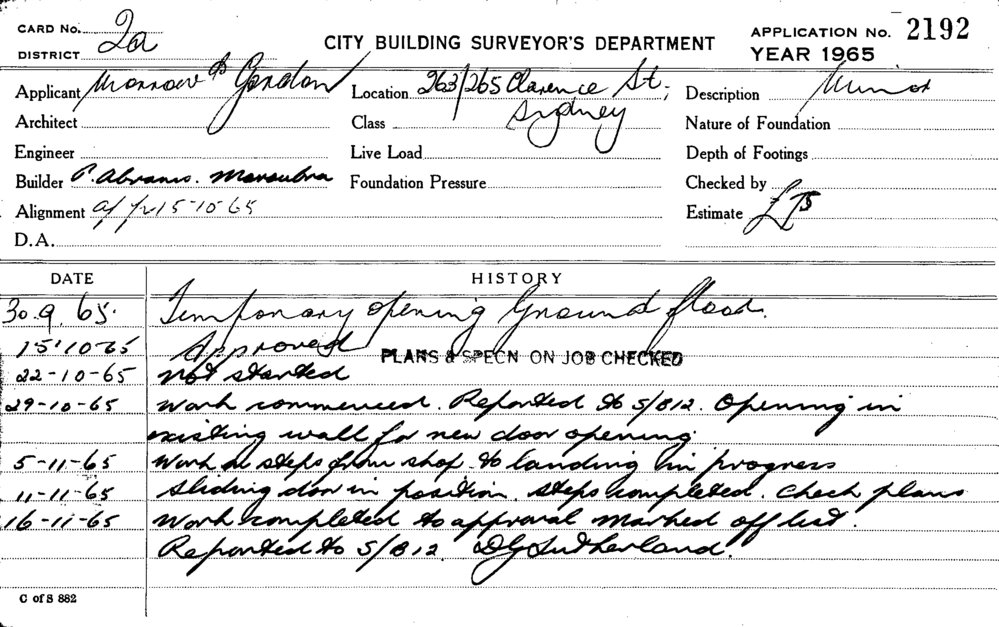 CARD No. 2a
DISTRICT
CITY BUILDING SURVEYOR'S DEPARTMENT
APPLICATION No. 2192
YEAR 1965
Applicant Morrow & Gordon
Location 263/265 Clarence St,
Sydney
Description Minor
Architect
Class
Nature of Foundation
Engineer
Live Load
Depth of Footings
Builder P. Abrams. Maroubra
Foundation Pressure
Checked by
Alignment 15-10-65
Estimate £75
D.A.
DATE HISTORY
30.9.65. Temporary opening Ground floor.
15-10-65 Approved PLANS & SPECN ON JOB CHECKED
22-10-65 Not started
29-10-65 Work commenced. Reported to S/B12. Opening in
existing wall for new door opening
5-11-65 Work on steps from shop to landing in progress
11-11-65 Sliding door in position. Steps completed. Check plans
16-11-65 Work completed to approval marked off list.
Reported to S/B12 DG Sutherland.
C of S 882